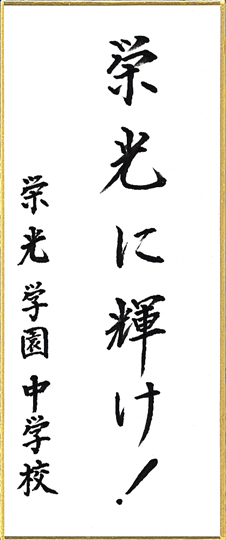 栄光に輝け!
栄光学園中学校